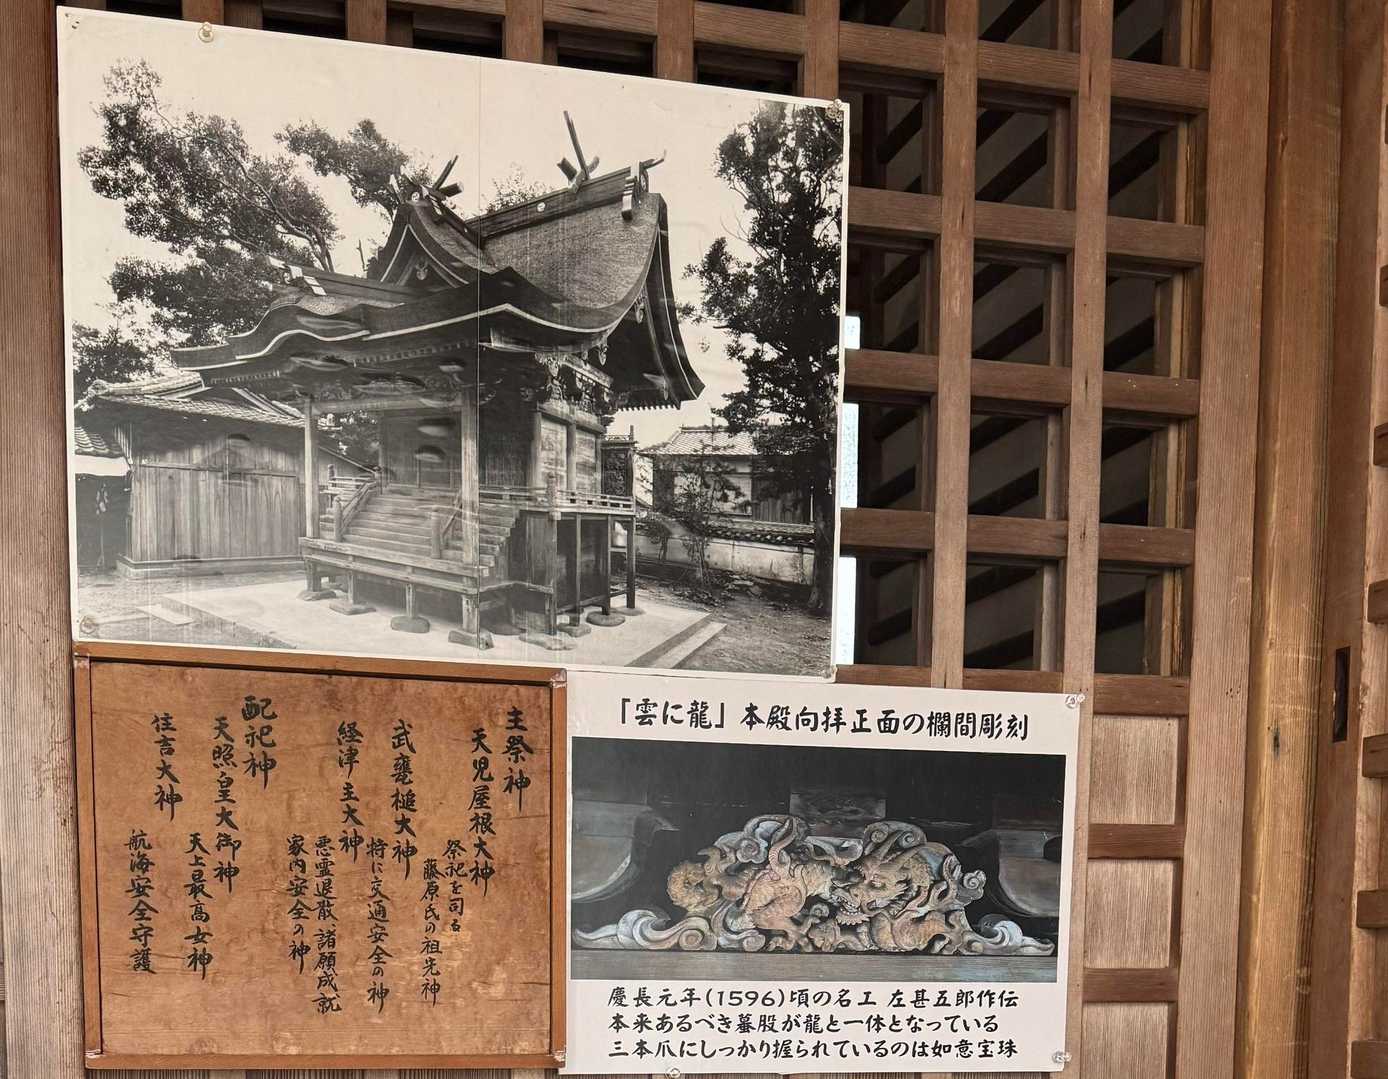 主祭神
天児屋根大神
祭祀を司る
藤原氏の祖先神
武甕槌大神
特に交通安全の神
経津主大神
悪霊退散諸願成就
家内安全の神
配祀神
天照皇大御神
天上最高女神
住吉大神
航海安全守護
「雲に龍」本殿向拝正面の欄間彫刻
慶長元年(1596)頃の名工 左甚五郎作伝
本来あるべき蟇股が龍と一体となっている
三本爪にしっかり握られているのは如意宝珠